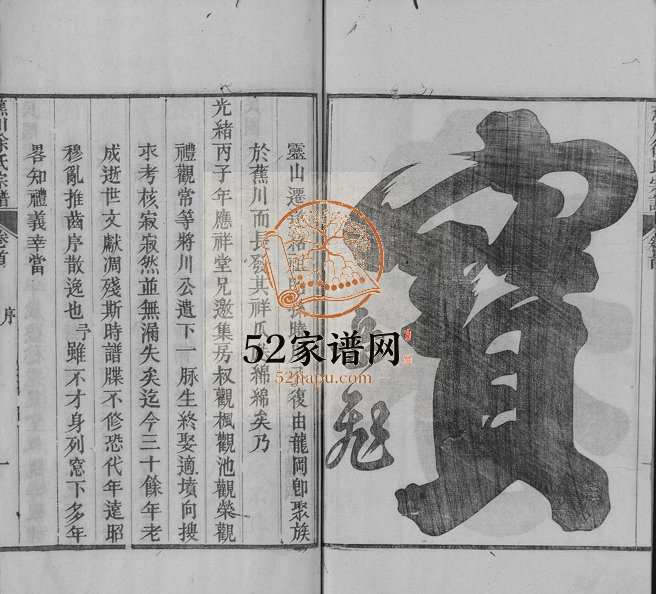 寶
靈山遷
復由龍岡卽聚族
於蕉川而長發其祥瓜
綿綿矣乃
光緒丙子年應祥堂兄邀集房叔觀楓觀池觀榮觀
禮觀常等將川公遺下一脉生終娶適墳向搜
求考核寂寂然並無漏失矣迄今三十餘年老
成逝世文獻凋殘斯時譜牒不修恐代年遠昭
穆亂推齒序散逸也予雖不才身列窓下多年
畧知禮義幸當
川徐氏宗譜
卷首
序
一
52家谱网
52jiapu.com